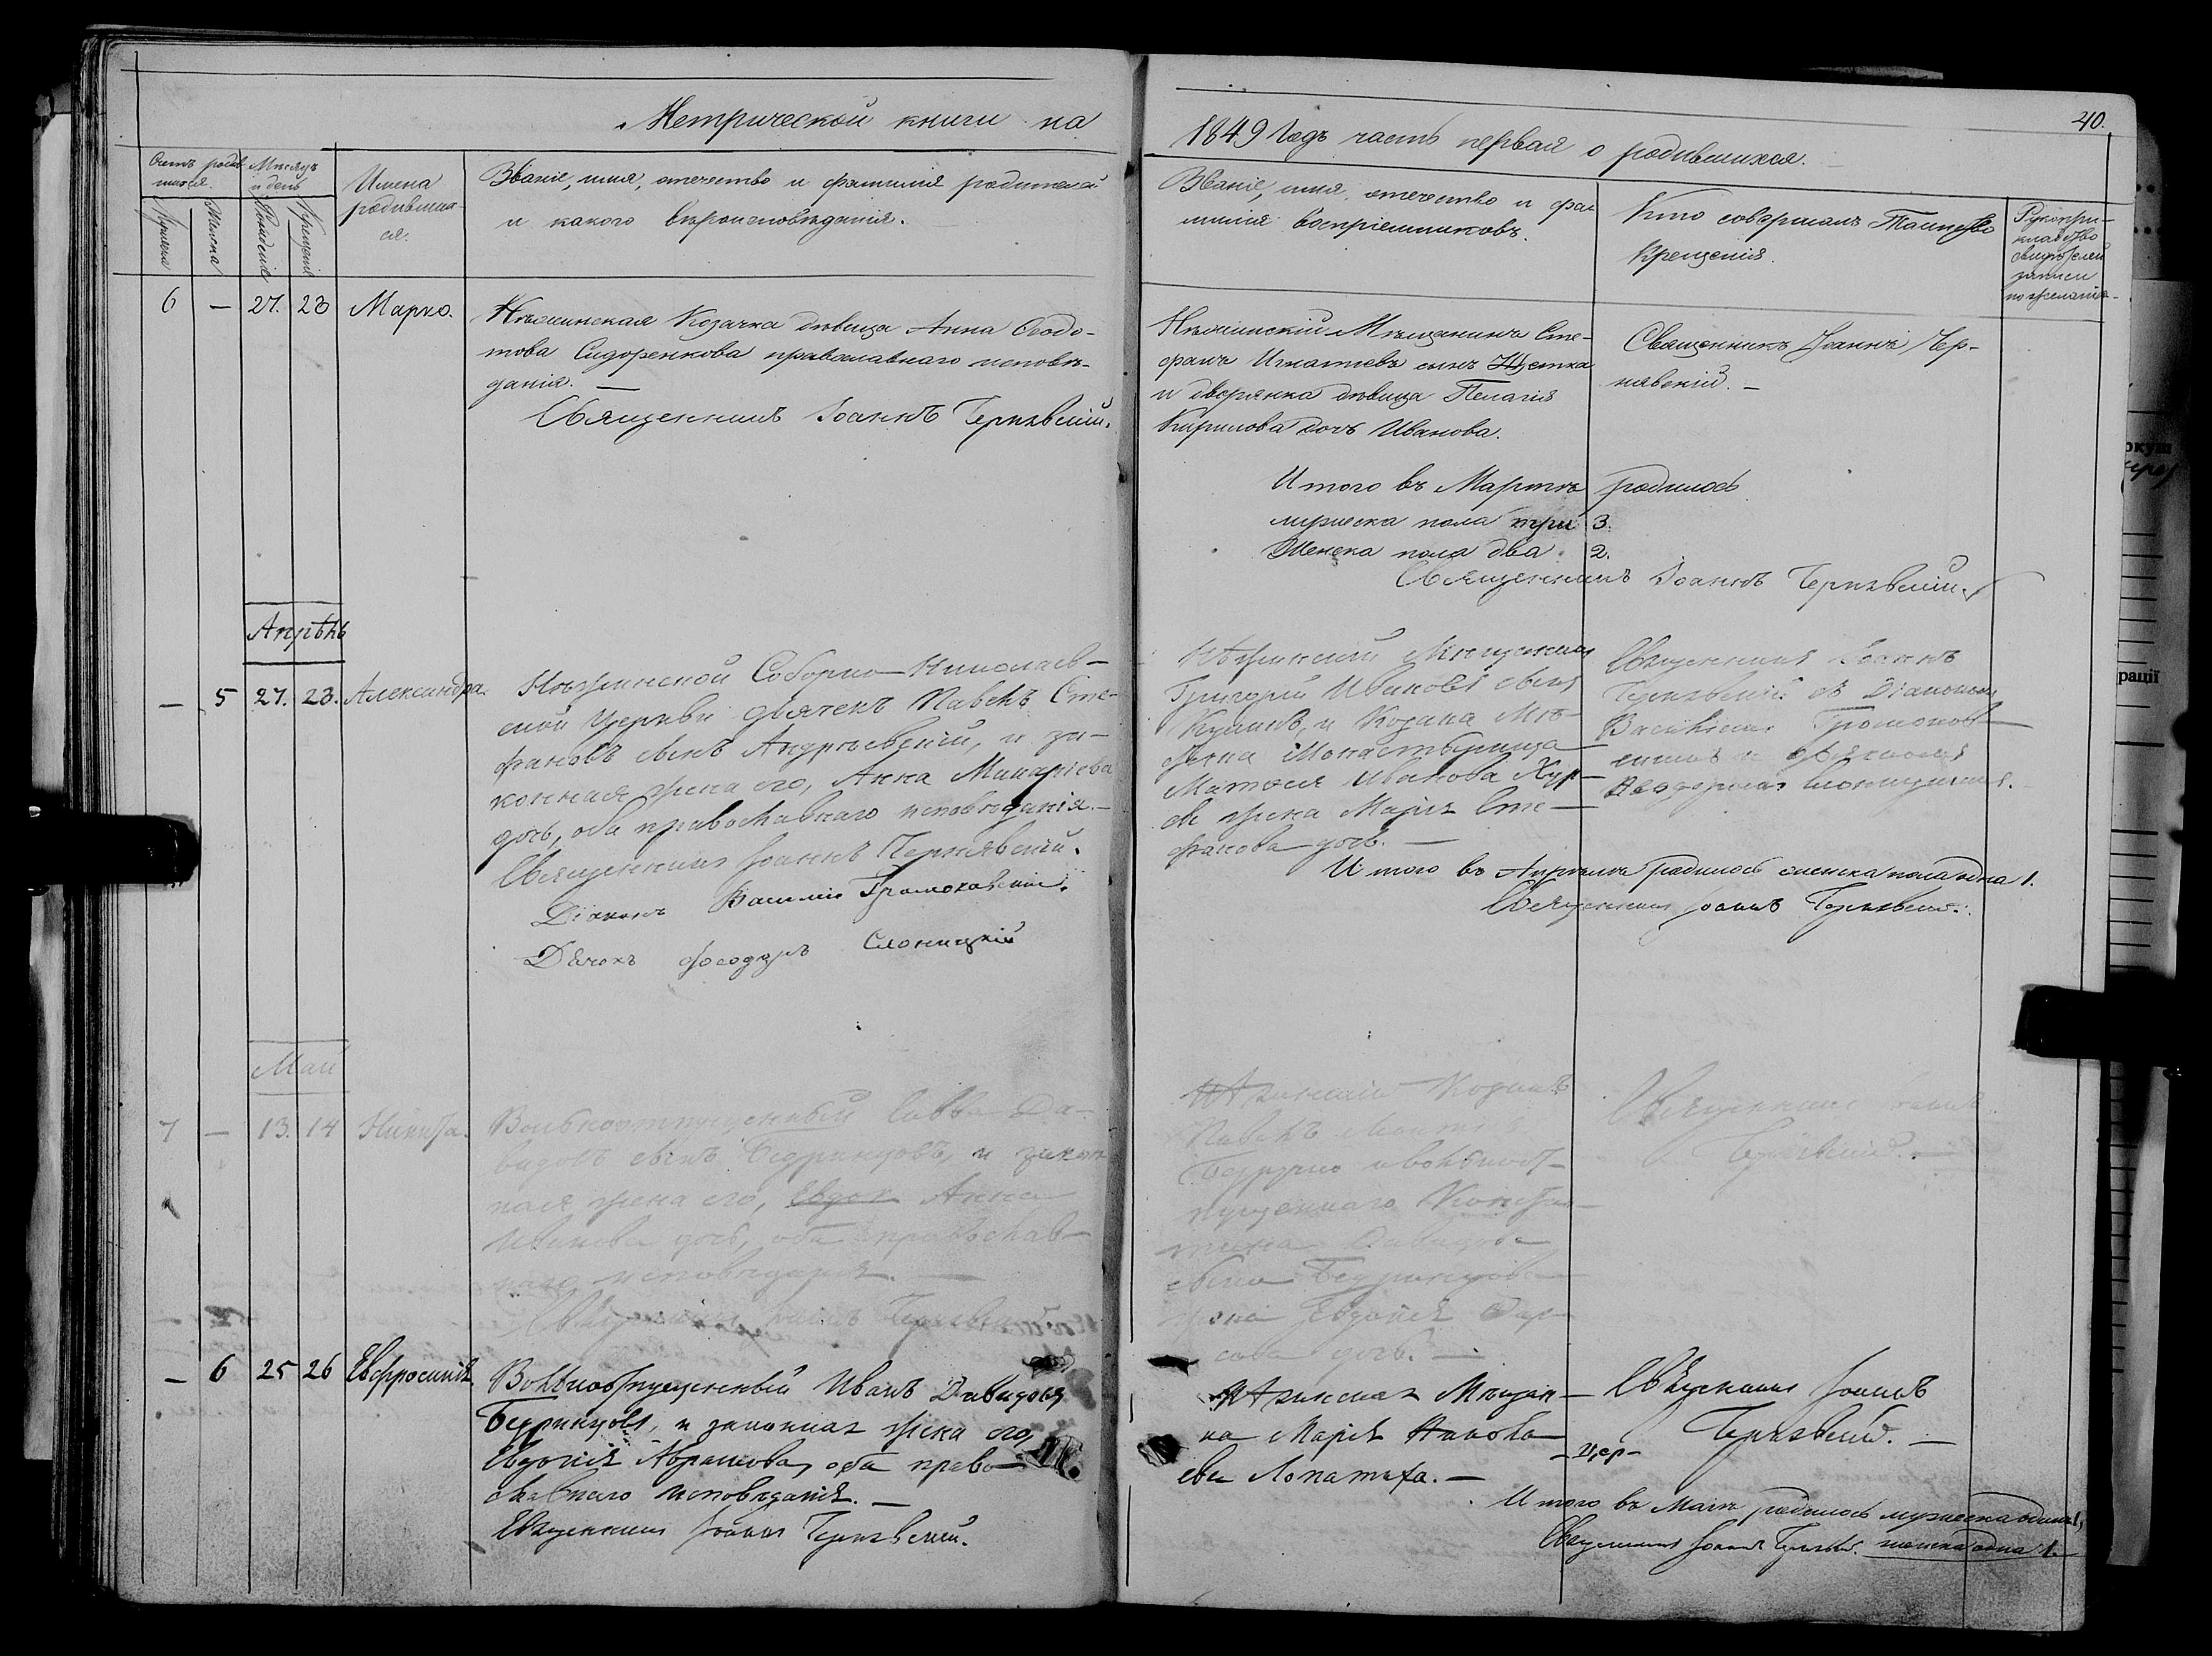 Метрической книги на
1849 Годъ часть первая о родившихся.
40.
Счетъ родив-
шихся.
Мѣсяцъ
и день
Имена
родивших-
ся.
Званіе, имя, отечество и фамилія родителей
и какого вѣроисповѣданія.
Мужеска
Женска
Рожденія
Крещенія
Званіе, имя, отечество и фа-
милія воспріемниковъ.
Кто совершалъ Таинство
Крещенія.
Рукопри-
кладство
свидѣтелей
записи
по желанію
6 — 27. 28 Марко.
Нѣжинская Козачка дѣвица Анна Федо-
това Сидоренкова православнаго исповѣ-
данія. —
Священникъ Іоаннъ Чернявскій.
Нѣжинскій Мѣщанинъ Сте-
фанъ Игнатіевъ сынъ Щетка
и дворянка дѣвица Пелагія
Кирилова дочь Иванова.
Священникъ Іоаннъ Чер-
нявскій. —
Итого въ Мартѣ родилось
мужеска пола три 3.
Женска пола два 2.
Священникъ Іоаннъ Чернявскій.
Апрѣль
— 5 27. 28. Александра.
Нѣжинской Соборно-Николаев-
ской Церкви дьячекъ Павелъ Сте-
фановъ сынъ Андріевскій, и за-
конная жена его, Анна Макаріева
дочь, оба православнаго исповѣданія. —
Священникъ Іоаннъ Чернявскій.
Діаконъ Василій Громоковскій.
Дячокъ Феодоръ Слоницкій
Нѣжинскій Мѣщанинъ
Григорій Ивановъ сынъ
и Козака Мѣ-
Монастырища
Матвея Иванова
жена Марія Сте-
фанова дочь. —
Священникъ Іоаннъ
Чернявскій съ Діакономъ
Василіемъ Громоков-
скимъ и дьячкомъ
Феодоромъ Слоницкимъ.
Итого въ Апрѣлѣ родилось женска пола одна 1.
Священникъ Іоаннъ Чернявскій.
Май
7 — 13. 14 Никита.
Вольноотпущенный Савва Да-
видовъ сынъ Бедринцовъ, и закон
ная жена его, Евдок Анна
Иванова дочь, оба православ-
наго исповѣданія. —
Священникъ Іоаннъ Чернявскій
Нѣжинскій Козакъ
Павелъ
и вольноот-
пущеннаго Констан-
тина Давидова
сына Бедринцова
жена Евдокія
дочь. —
Священникъ Іоаннъ
Чернявскій. —
— 6 25 26 Евфросинія.
Вольноотпущенный Иванъ Давидовъ
Бедринцовъ, и законная жена его,
Евдокія Абрамова, оба право-
славнаго исповѣданія. —
Священникъ Іоаннъ Чернявскій.
Нѣжинская Мѣщан-
ка Марія
ева Лопатиха. —
Священникъ Іоаннъ
Чернявскій. —
-цер-
Итого въ Маѣ родилось мужеска одинъ 1,
Священникъ Іоаннъ Чернявскій. женска одна 1.